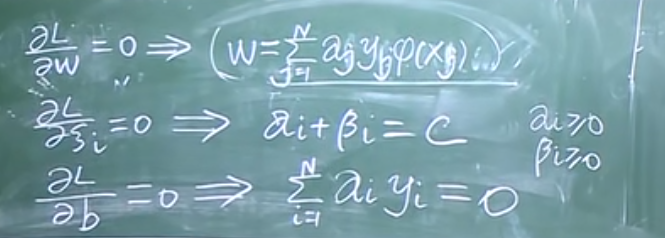 ∂L/∂w = 0 ⇒ (w = Σ_{j=1}^{N} α_j y_j φ(x_j))
∂L/∂ξ_i = 0 ⇒ α_i + β_i = C α_i ≥ 0
β_i ≥ 0
∂L/∂b = 0 ⇒ Σ_{i=1}^{N} α_i y_i = 0